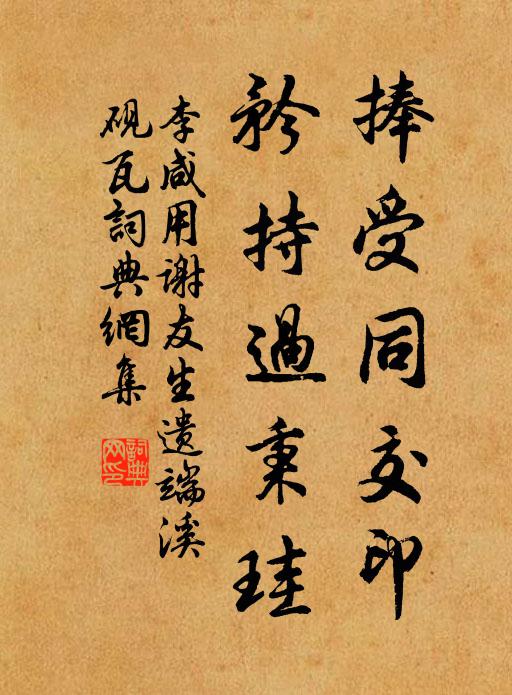 捧受同交印
矜持過秉珪
李咸用谢友生遗端溪
砚瓦詞典網集
詞典网印